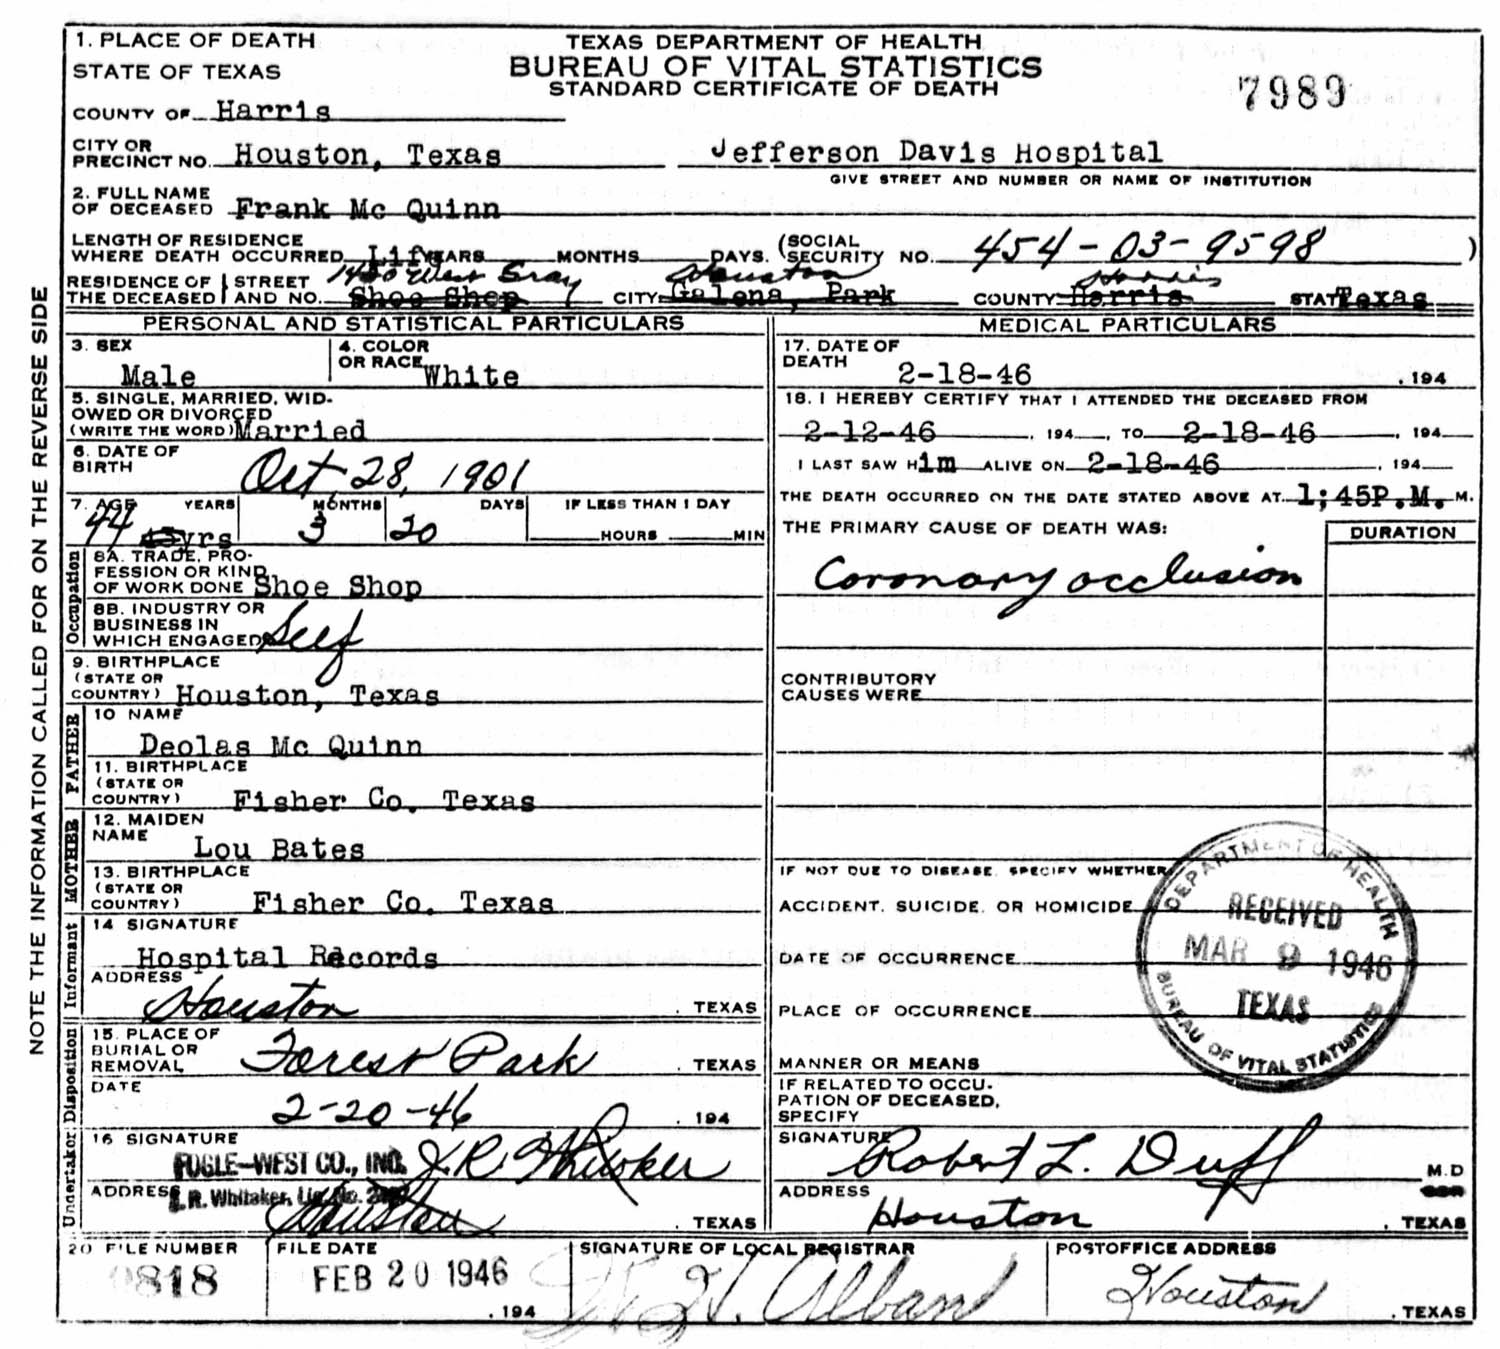 1. PLACE OF DEATH
STATE OF TEXAS
TEXAS DEPARTMENT OF HEALTH
BUREAU OF VITAL STATISTICS
STANDARD CERTIFICATE OF DEATH
7989
COUNTY OF Harris
CITY OR PRECINCT NO. Houston, Texas Jefferson Davis Hospital
GIVE STREET AND NUMBER OR NAME OF INSTITUTION
2. FULL NAME OF DECEASED Frank Mc Quinn
LENGTH OF RESIDENCE WHERE DEATH OCCURRED Life YEARS MONTHS DAYS. (SOCIAL SECURITY NO. 454-03-9598 )
1420 West Gray Houston Harris
RESIDENCE OF THE DECEASED STREET AND NO. Shoe Shop CITY Galena, Park COUNTY Harris STATE Texas
PERSONAL AND STATISTICAL PARTICULARS
3. SEX Male
4. COLOR OR RACE White
5. SINGLE, MARRIED, WIDOWED OR DIVORCED
(WRITE THE WORD) Married
6. DATE OF BIRTH Oct 28, 1901
7. AGE YEARS MONTHS DAYS IF LESS THAN 1 DAY
44 yrs 3 20 HOURS MIN
Occupation
8A. TRADE, PROFESSION OR KIND OF WORK DONE Shoe Shop
8B. INDUSTRY OR BUSINESS IN WHICH ENGAGED Self
9. BIRTHPLACE (STATE OR COUNTRY) Houston, Texas
FATHER
10 NAME
Deolas Mc Quinn
11. BIRTHPLACE (STATE OR COUNTRY) Fisher Co. Texas
MOTHER
12. MAIDEN NAME Lou Bates
13. BIRTHPLACE (STATE OR COUNTRY) Fisher Co. Texas
Informant
14 SIGNATURE
Hospital Records
ADDRESS
Houston . TEXAS
Undertaker Disposition
15. PLACE OF BURIAL OR REMOVAL Forest Park . TEXAS
DATE
2-20-46 . 194
16 SIGNATURE
FOGLE-WEST CO., INC. J.R. Whitaker
ADDRESS J. R. Whitaker, Lic. No.
Houston . TEXAS
MEDICAL PARTICULARS
17. DATE OF DEATH 2-18-46 . 194
18. I HEREBY CERTIFY THAT I ATTENDED THE DECEASED FROM
2-12-46 , 194 , TO 2-18-46 , 194
I LAST SAW Him ALIVE ON 2-18-46 , 194
THE DEATH OCCURRED ON THE DATE STATED ABOVE AT 1;45P.M. M.
THE PRIMARY CAUSE OF DEATH WAS: DURATION
Coronary occlusion
CONTRIBUTORY CAUSES WERE
IF NOT DUE TO DISEASE, SPECIFY WHETHER
ACCIDENT, SUICIDE, OR HOMICIDE
DATE OF OCCURRENCE
PLACE OF OCCURRENCE
MANNER OR MEANS
IF RELATED TO OCCUPATION OF DECEASED, SPECIFY
DEPARTMENT OF HEALTH
RECEIVED
MAR 9 1946
TEXAS
BUREAU OF VITAL STATISTICS
SIGNATURE Robert L. Duff M.D
ADDRESS
Houston . TEXAS
20 FILE NUMBER FILE DATE SIGNATURE OF LOCAL REGISTRAR POSTOFFICE ADDRESS
0818 FEB 20 1946 W. H. Alban Houston
. 194 . TEXAS
NOTE THE INFORMATION CALLED FOR ON THE REVERSE SIDE